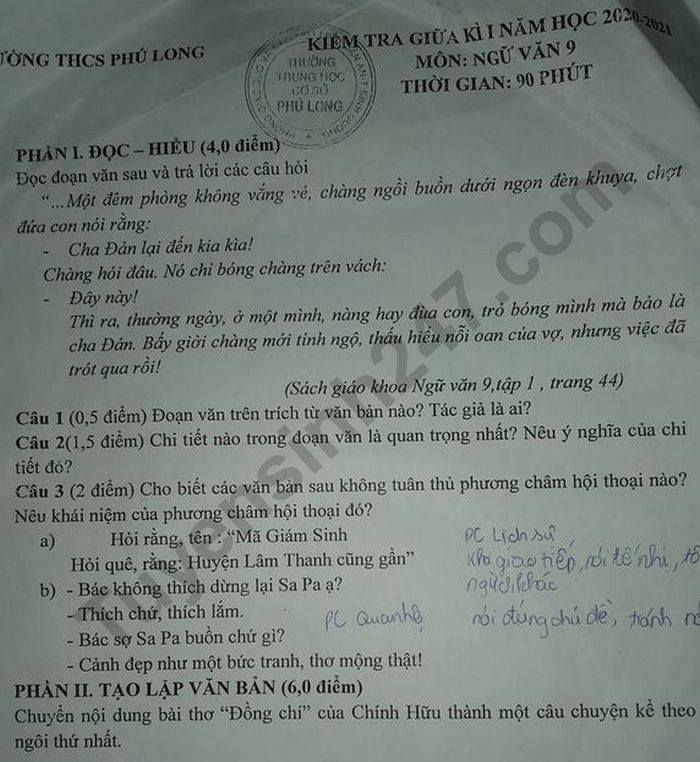 ƯỜNG THCS PHÚ LONG
KIỂM TRA GIỮA KÌ I NĂM HỌC 2020-2021
MÔN: NGỮ VĂN 9
THỜI GIAN: 90 PHÚT
TRƯỜNG
TRUNG HỌC
CƠ SỞ
PHÚ LONG
PHẦN I. ĐỌC – HIỂU (4,0 điểm)
Đọc đoạn văn sau và trả lời các câu hỏi
“...Một đêm phòng không vắng vẻ, chàng ngồi buồn dưới ngọn đèn khuya, chợt
đứa con nói rằng:
- Cha Đản lại đến kia kìa!
Chàng hỏi đâu. Nó chỉ bóng chàng trên vách:
- Đây này!
Thì ra, thường ngày, ở một mình, nàng hay đùa con, trỏ bóng mình mà bảo là
cha Đản. Bấy giời chàng mới tỉnh ngộ, thấu hiểu nỗi oan của vợ, nhưng việc đã
trót qua rồi!
(Sách giáo khoa Ngữ văn 9,tập 1 , trang 44)
Câu 1 (0,5 điểm) Đoạn văn trên trích từ văn bản nào? Tác giả là ai?
Câu 2(1,5 điểm) Chi tiết nào trong đoạn văn là quan trọng nhất? Nêu ý nghĩa của chi
tiết đó?
Câu 3 (2 điểm) Cho biết các văn bản sau không tuân thủ phương châm hội thoại nào?
Nêu khái niệm của phương châm hội thoại đó?
a) Hỏi rằng, tên : “Mã Giám Sinh
PC Lịch sự
Hỏi quê, rằng: Huyện Lâm Thanh cũng gần”
khi giao tiếp, nói tế nhị, tô
người khác
b) - Bác không thích dừng lại Sa Pa ạ?
- Thích chứ, thích lắm.
PC Quan hệ
nói đúng chủ đề, tránh nó
- Bác sợ Sa Pa buồn chứ gì?
- Cảnh đẹp như một bức tranh, thơ mộng thật!
PHẦN II. TẠO LẬP VĂN BẢN (6,0 điểm)
Chuyển nội dung bài thơ “Đồng chí” của Chính Hữu thành một câu chuyện kể theo
ngôi thứ nhất.
Tuyensinh247.com